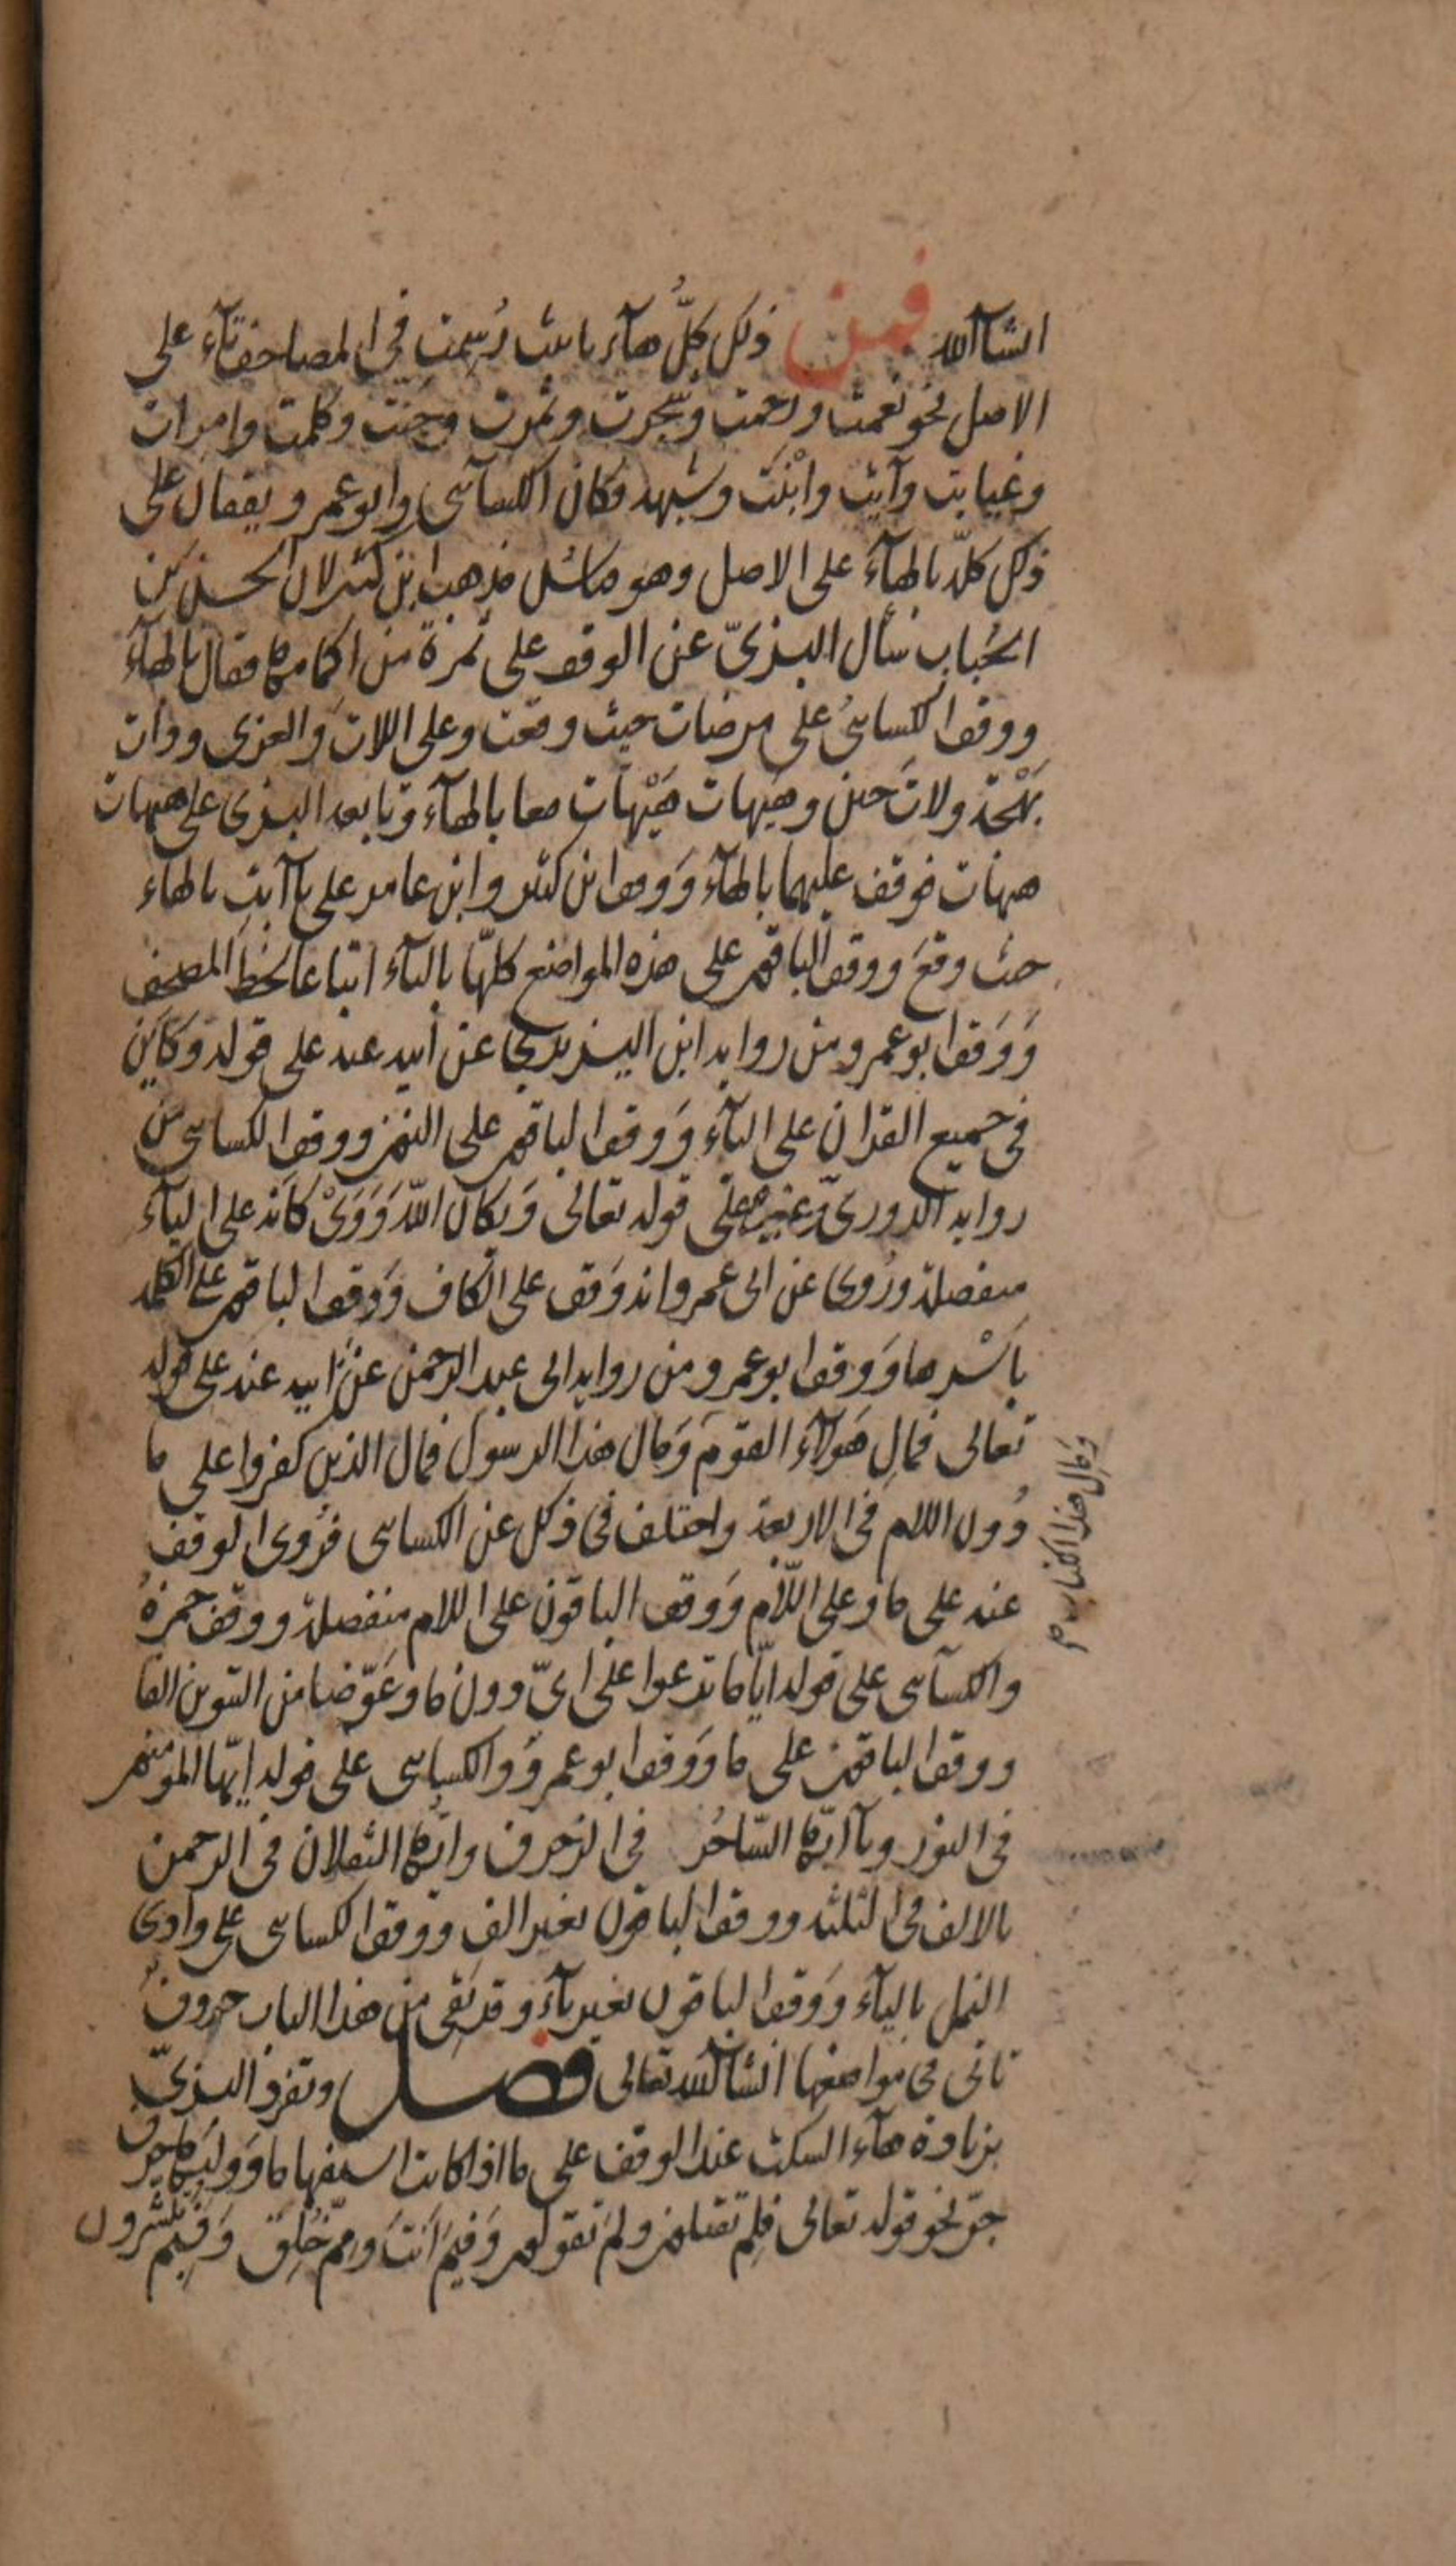 انشآالله فمن ذلك كلُّ هآء تانيث رُسِمت في المصاحف تآءً على
الاصل نحو نعمت ورحمت وشجرت وثمرت وجنّت وكلمت وامرات
وغيابت وآيت وابْنَت وشبهه فكان الكسآئى وابو عمرو يقفان على
ذلك كلّه بالهآء على الاصل وهو قياس مذهب ابن كثير لان الحسن بن
الحُباب سأل البزىّ عن الوقف على ثمرة من اكمامها فقال بالهآء
ووقف الكسائىُ على مرضات حيث وقعت وعلى اللات والعزى وذات
بَهْجة ولاتَ حين وهيهات هَيْهات معا بالهآء وتابعه البزى على هيهات
هيهات فوقف عليهما بالهآء وَوقف ابن كثير وابن عامر على يا آبتِ بالهاء
حيث وقعَ ووقف الباقون على هذه المواضع كلّها بالتآء اتباعا لخط المصحف
وَوَقف ابو عمرو من رواية ابن اليزيدي عن ابيه عنه على قوله وكَاَيّن
فى جميع القران على اليآء وَوقف الباقون على النون ووقف الكسائى من
رواية الدورىّ وغيره على قوله تعالى وَيكاَن اللّه وَوَىْ كاَنه على اليآء
منفصلة ورُوى عن ابى عمرو انه وَقف على الكاف وَوقف الباقون على الكلمة
بِاَسْرها وَوقف ابو عمرو من رواية ابى عبد الرحمن عن ابيه عنه على قوله
تعالى فمالِ هَولآءِ القومَ وَمال هذا الرسول فمال الذين كفروا على ما
دُون اللام فى الاربعة واختلف فى ذلك عن الكسائى فرُوى الوقف
عنه على ما وعلى اللّام وَوقف الباقون على اللام منفصلة ووقف حمزةُ
والكسآئى على قوله ايّا ما تدعوا على اىّ دون ما وعَوّضا من التنوين الفا
ووقف الباقون على ما وَوَقف ابو عمروَ والكسائى على قوله ايّها المومنون
فى النور ويآ ايّها السّاحُر فى الزخرف وايّها الثقلان فى الرحمن
بالالف فى الثلثة ووقف الباقون بغير الف ووقف الكسائى على وادى
النمل باليآء وَوقف الباقون بغير يآء وقد بَقى من هذا الباب حروفٌ
تاتى فى مواضعها انشآالله تعالى فصل وتفرد البزىّ
بزيادة هآء السكت عند الوقف على ما اذا كانت استفهاما وَوليَها حرف
جرّ نحو قوله تعالى فلِم تقتلون ولمَ تقولون وَفيمَ اَنتَ ومِمَّ خُلِقَ وَفبِمَ تُبشّرون
وَمال هذا الكتاب